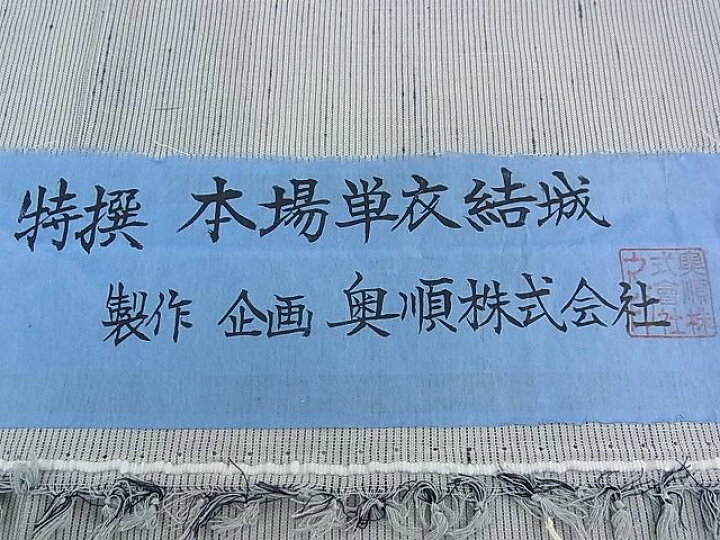 特撰 本場単衣結城
製作 企画 奥順株式会社
奥順株
式會社